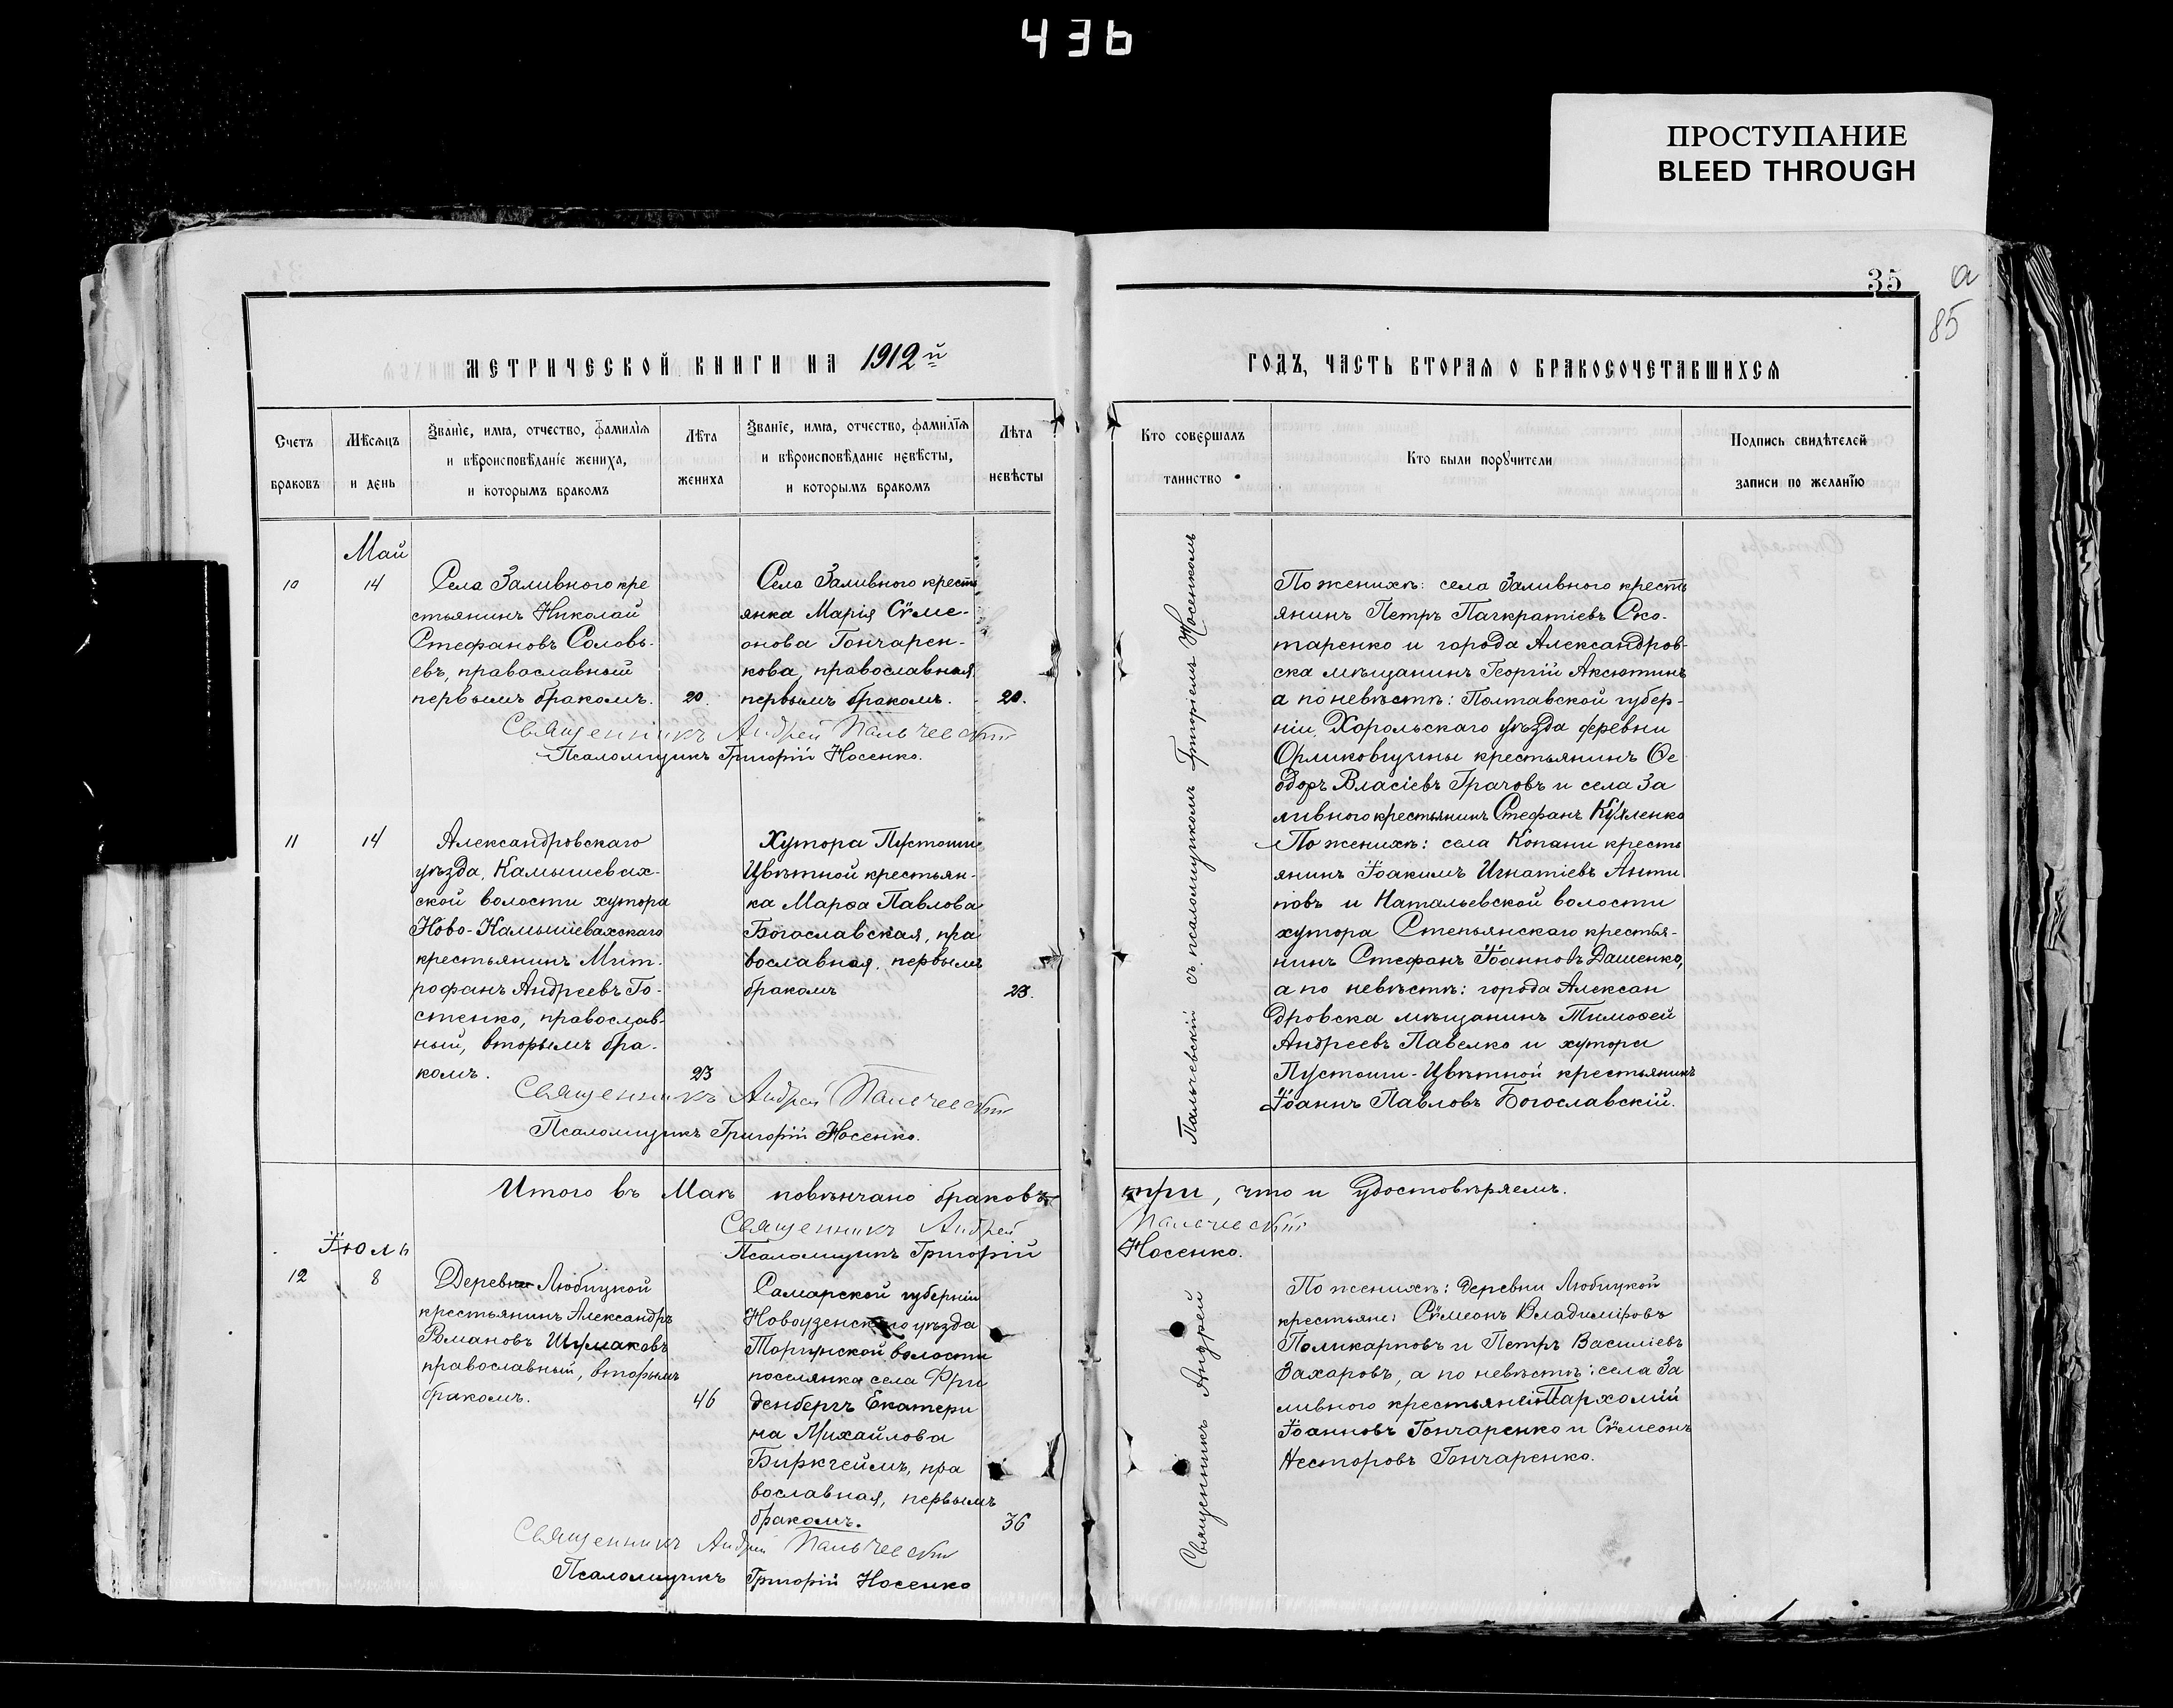 436
ПРОСТУПАНИЕ
BLEED THROUGH
35
а
85
МЕТРИЧЕСКОЙ КНИГИ НА 1912й
ГОДЪ, ЧАСТЬ ВТОРАЯ О БРАКОСОЧЕТАВШИХСЯ
Счетъ
браковъ
Мѣсяцъ
и день
Званіе, имя, отчество, фамилія
и вѣроисповѣданіе жениха,
и которымъ бракомъ
Лѣта
жениха
Званіе, имя, отчество, фамилія
и вѣроисповѣданіе невѣсты,
и которымъ бракомъ
Лѣта
невѣсты
Кто совершалъ
таинство
Кто были поручители
Подпись свидѣтелей
записи по желанію
Май
10
14
Села Заливного кре
стьянинъ Николай
Стефановъ Соловь-
евъ, православный
первымъ бракомъ.
20.
Села Заливного крестъ
янка Марія Сѵме-
онова Гончарен-
кова, православная
первымъ бракомъ.
20.
Священникъ Андрей Пальчевскій
Псаломщикъ Григорій Носенко.
По женихѣ: села Заливного кресть
янинъ Петръ Панкратіевъ Ско-
таренко и города Александров-
ска мѣщанинъ Георгій Аксютинъ
а по невѣстѣ: Полтавской губер-
ніи, Хорольскаго уѣзда деревни
Орликовщины крестьянинъ Ѳе
одоръ Власіевъ Грачовъ и села За
ливного крестьянинъ Стефанъ
11
14
Александровскаго
уѣзда, Камышевах-
ской волости хутора
Ново-Камышевахскаго
крестьянинъ Мит-
рофанъ Андреевъ Го-
стенко, православ-
ный, вторымъ бра-
комъ.
23
Хутора Пустоши
Цвѣтной крестьян-
ка Марѳа Павлова
Богославская, пра
вославная, первымъ
бракомъ
23.
Священникъ Андрей Пальчевскій
Псаломщикъ Григорій Носенко.
По женихѣ: села Копани кресть
янинъ Іоакимъ Игнатіевъ Анти
повъ и Натальевской волости
хутора Степьянскаго крестья-
нинъ Стефанъ Іоанновъ Дашенко,
а по невѣстѣ: города Алексан
дровска мѣщанинъ Тимоѳей
Андреевъ Павелко и хутора
Пустоши-Цвѣтной крестьянинъ
Іоаннъ Павловъ Богославскій.
Итого въ Маѣ повѣнчано браковъ три, что и удостовѣряемъ.
Священникъ Андрей Пальчевскій
Псаломщикъ Григорій Носенко.
Іюль
12
8
Деревни Любицкой
крестьянинъ Александръ
Романовъ Шумаковъ
православный, вторымъ
бракомъ.
46
Самарской губерніи
Новоузенскаго уѣзда
Торгунской волости
поселянка села Фри
денбергъ Екатери
на Михайлова
Биркгеймъ, пра
вославная, первымъ
бракомъ.
36
Священникъ Андрей Пальчевскій
Псаломщикъ Григорій Носенко
Священникъ Андрей Пальчевскій съ псаломщикомъ Григоріемъ Носенкомъ
По женихѣ: деревни Любицкой
крестьяне: Сѵмеонъ Владиміровъ
Поликарповъ и Петръ Василіевъ
Захаровъ, а по невѣстѣ: села За
ливного крестьяне Пархомій
Іоанновъ Гончаренко и Сѵмеонъ
Несторовъ Гончаренко.